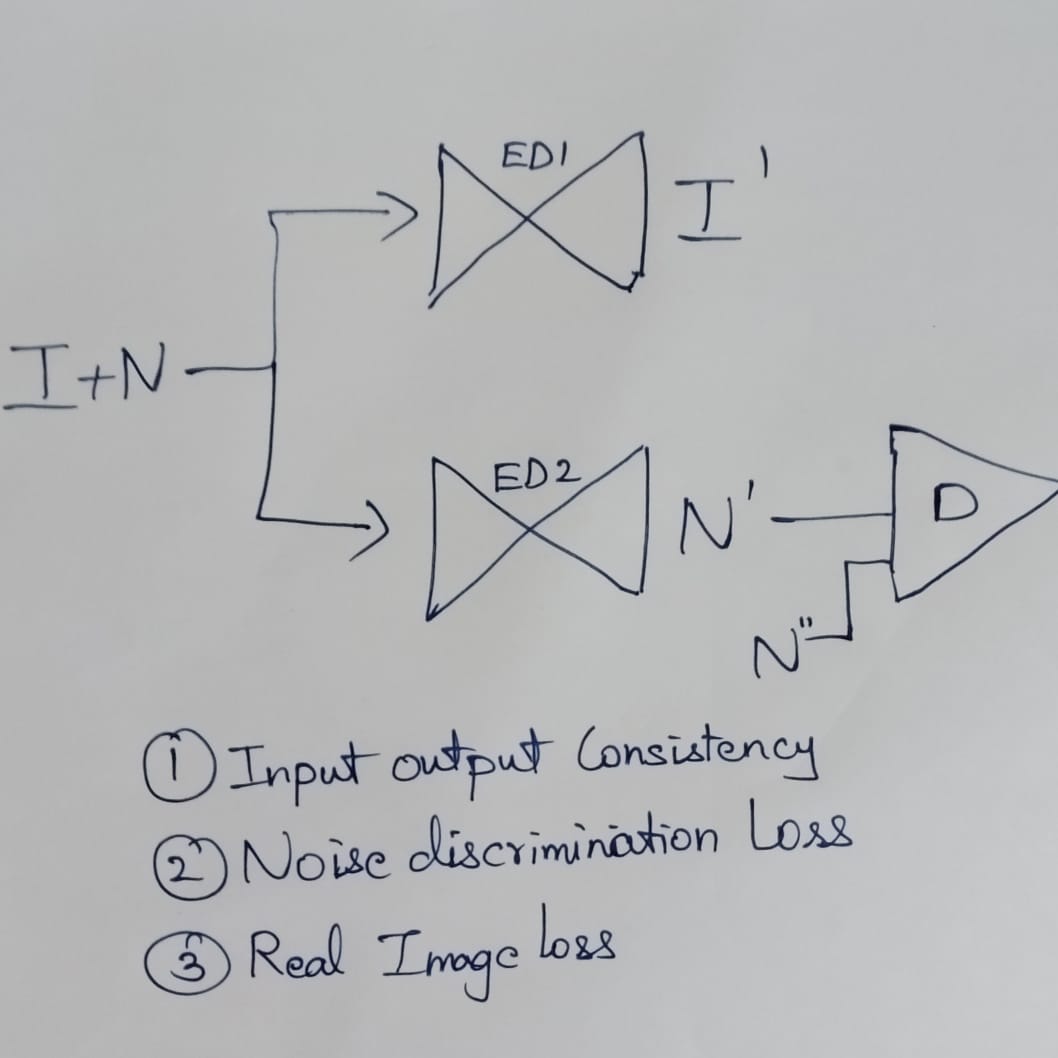 ED1
I'
I+N
ED2
N'
D
N"
① Input output Consistency
② Noise discrimination Loss
③ Real Image loss